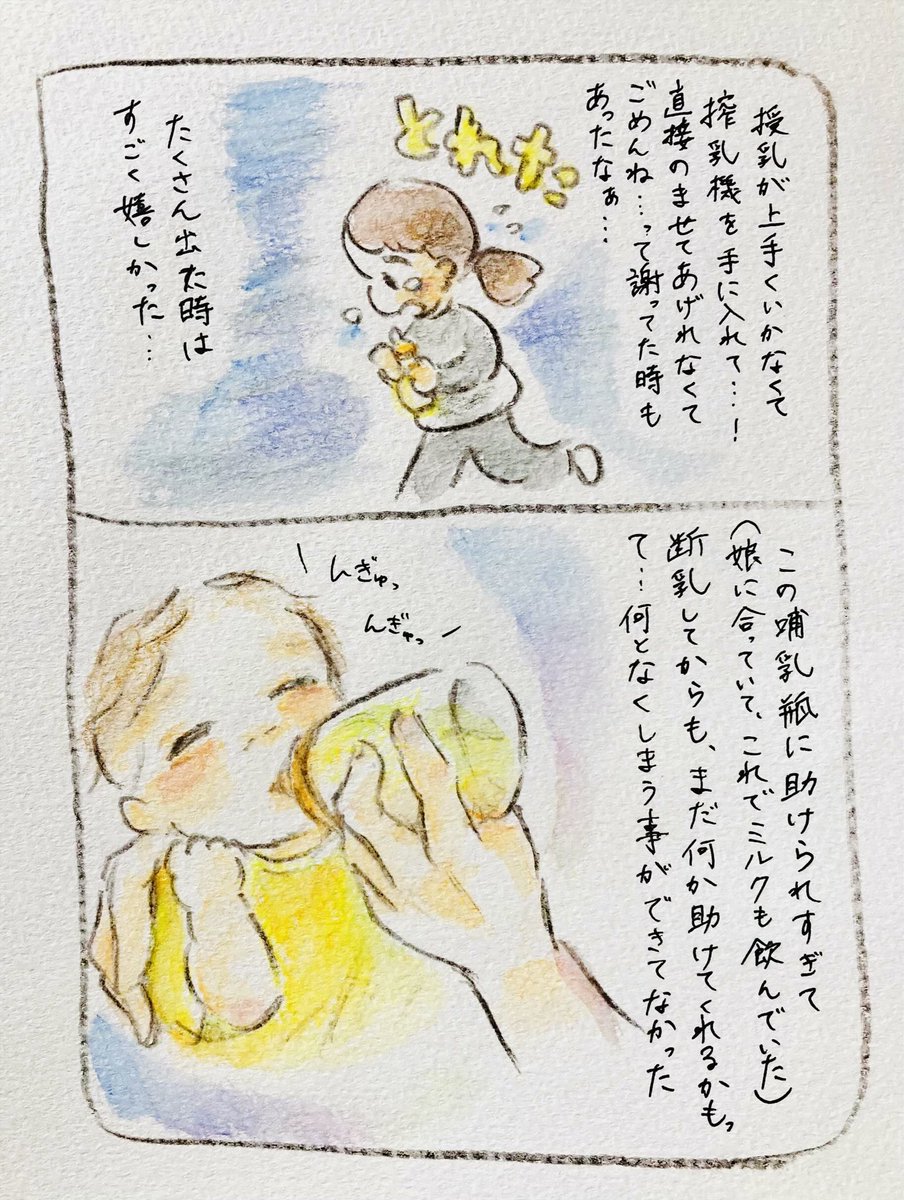 授乳が上手くいかなくて
搾乳機を手に入れて…！
直接のませてあげれなくて
ごめんね…って謝ってた時も
あったなぁ…
とれたっ
たくさん出た時は
すごく嬉しかった…
この哺乳瓶に助けられすぎて
(娘に合っていて、これでミルクも飲んでいた)
断乳してからも、まだ何か助けてくれるかもっ
て…何となくしまう事ができてなかった
んぎゅっ
んぎゅっ